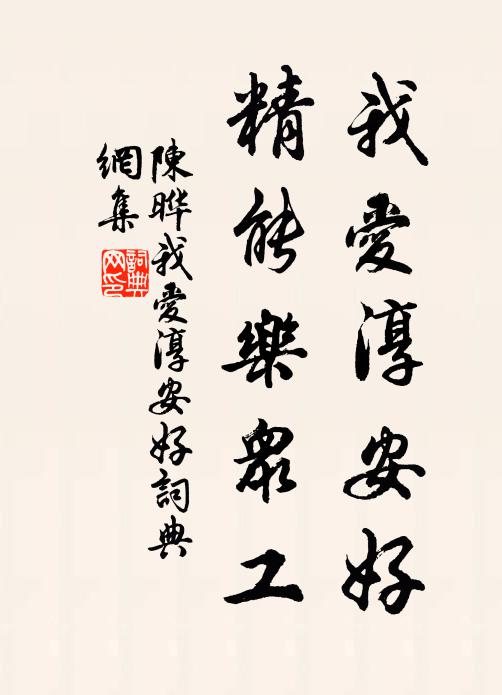 我愛淳安好
精能樂眾工
陳晔我愛淳安好詞典
網集
詞典
网印